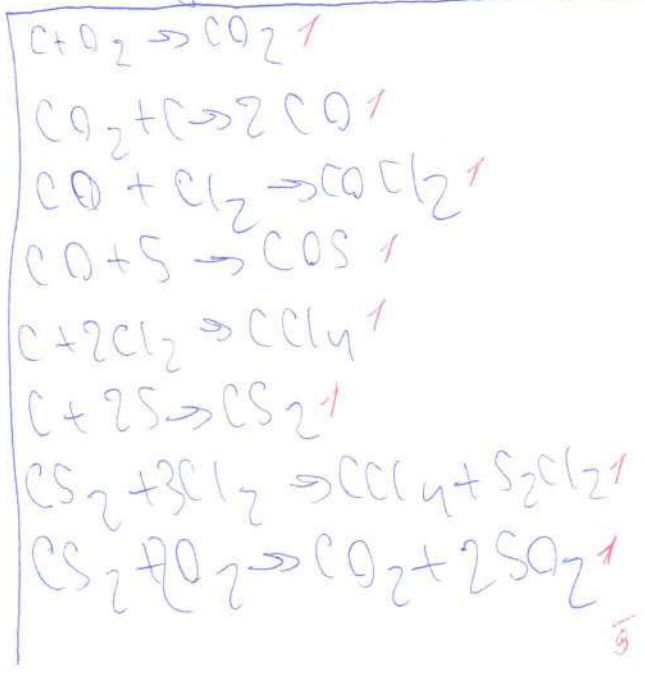 C+O2 → CO2 1
CO2+C→2CO 1
CO + Cl2 → COCl2 1
CO+S → COS 1
C+2Cl2 → CCl4 1
C+2S→CS2 1
CS2+3Cl2 → CCl4+S2Cl2 1